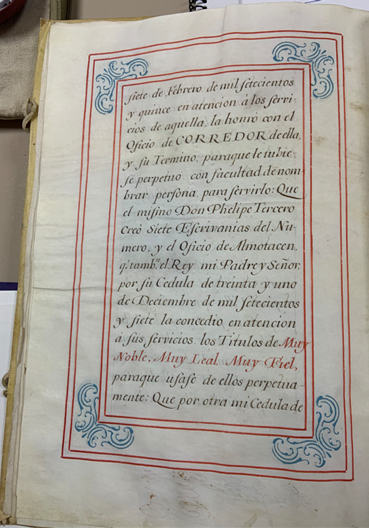 siete de Febrero de mil setecientos
y quince en atencion á los servi-
cios de aquella, la honró con el
Oficio de CORREDOR de ella,
y su Termino, paraque le tubie-
se perpetuo con facultad de nom-
brar persona para servirlo: Que
el mismo Don Phelipe Tercero
Creó Siete Escrivanias del Nu-
mero, y el Oficio de Almotacen,
q.e tamb.n el Rey mi Padre y Señor
por su Cedula de treinta y uno
de Deciembre de mil setecientos
y siete la concedio en atencion
á sus servicios los Titulos de Muy
Noble, Muy Leal Muy Fiel,
paraque usase de ellos perpetua-
mente: Que por otra mi Cedula de